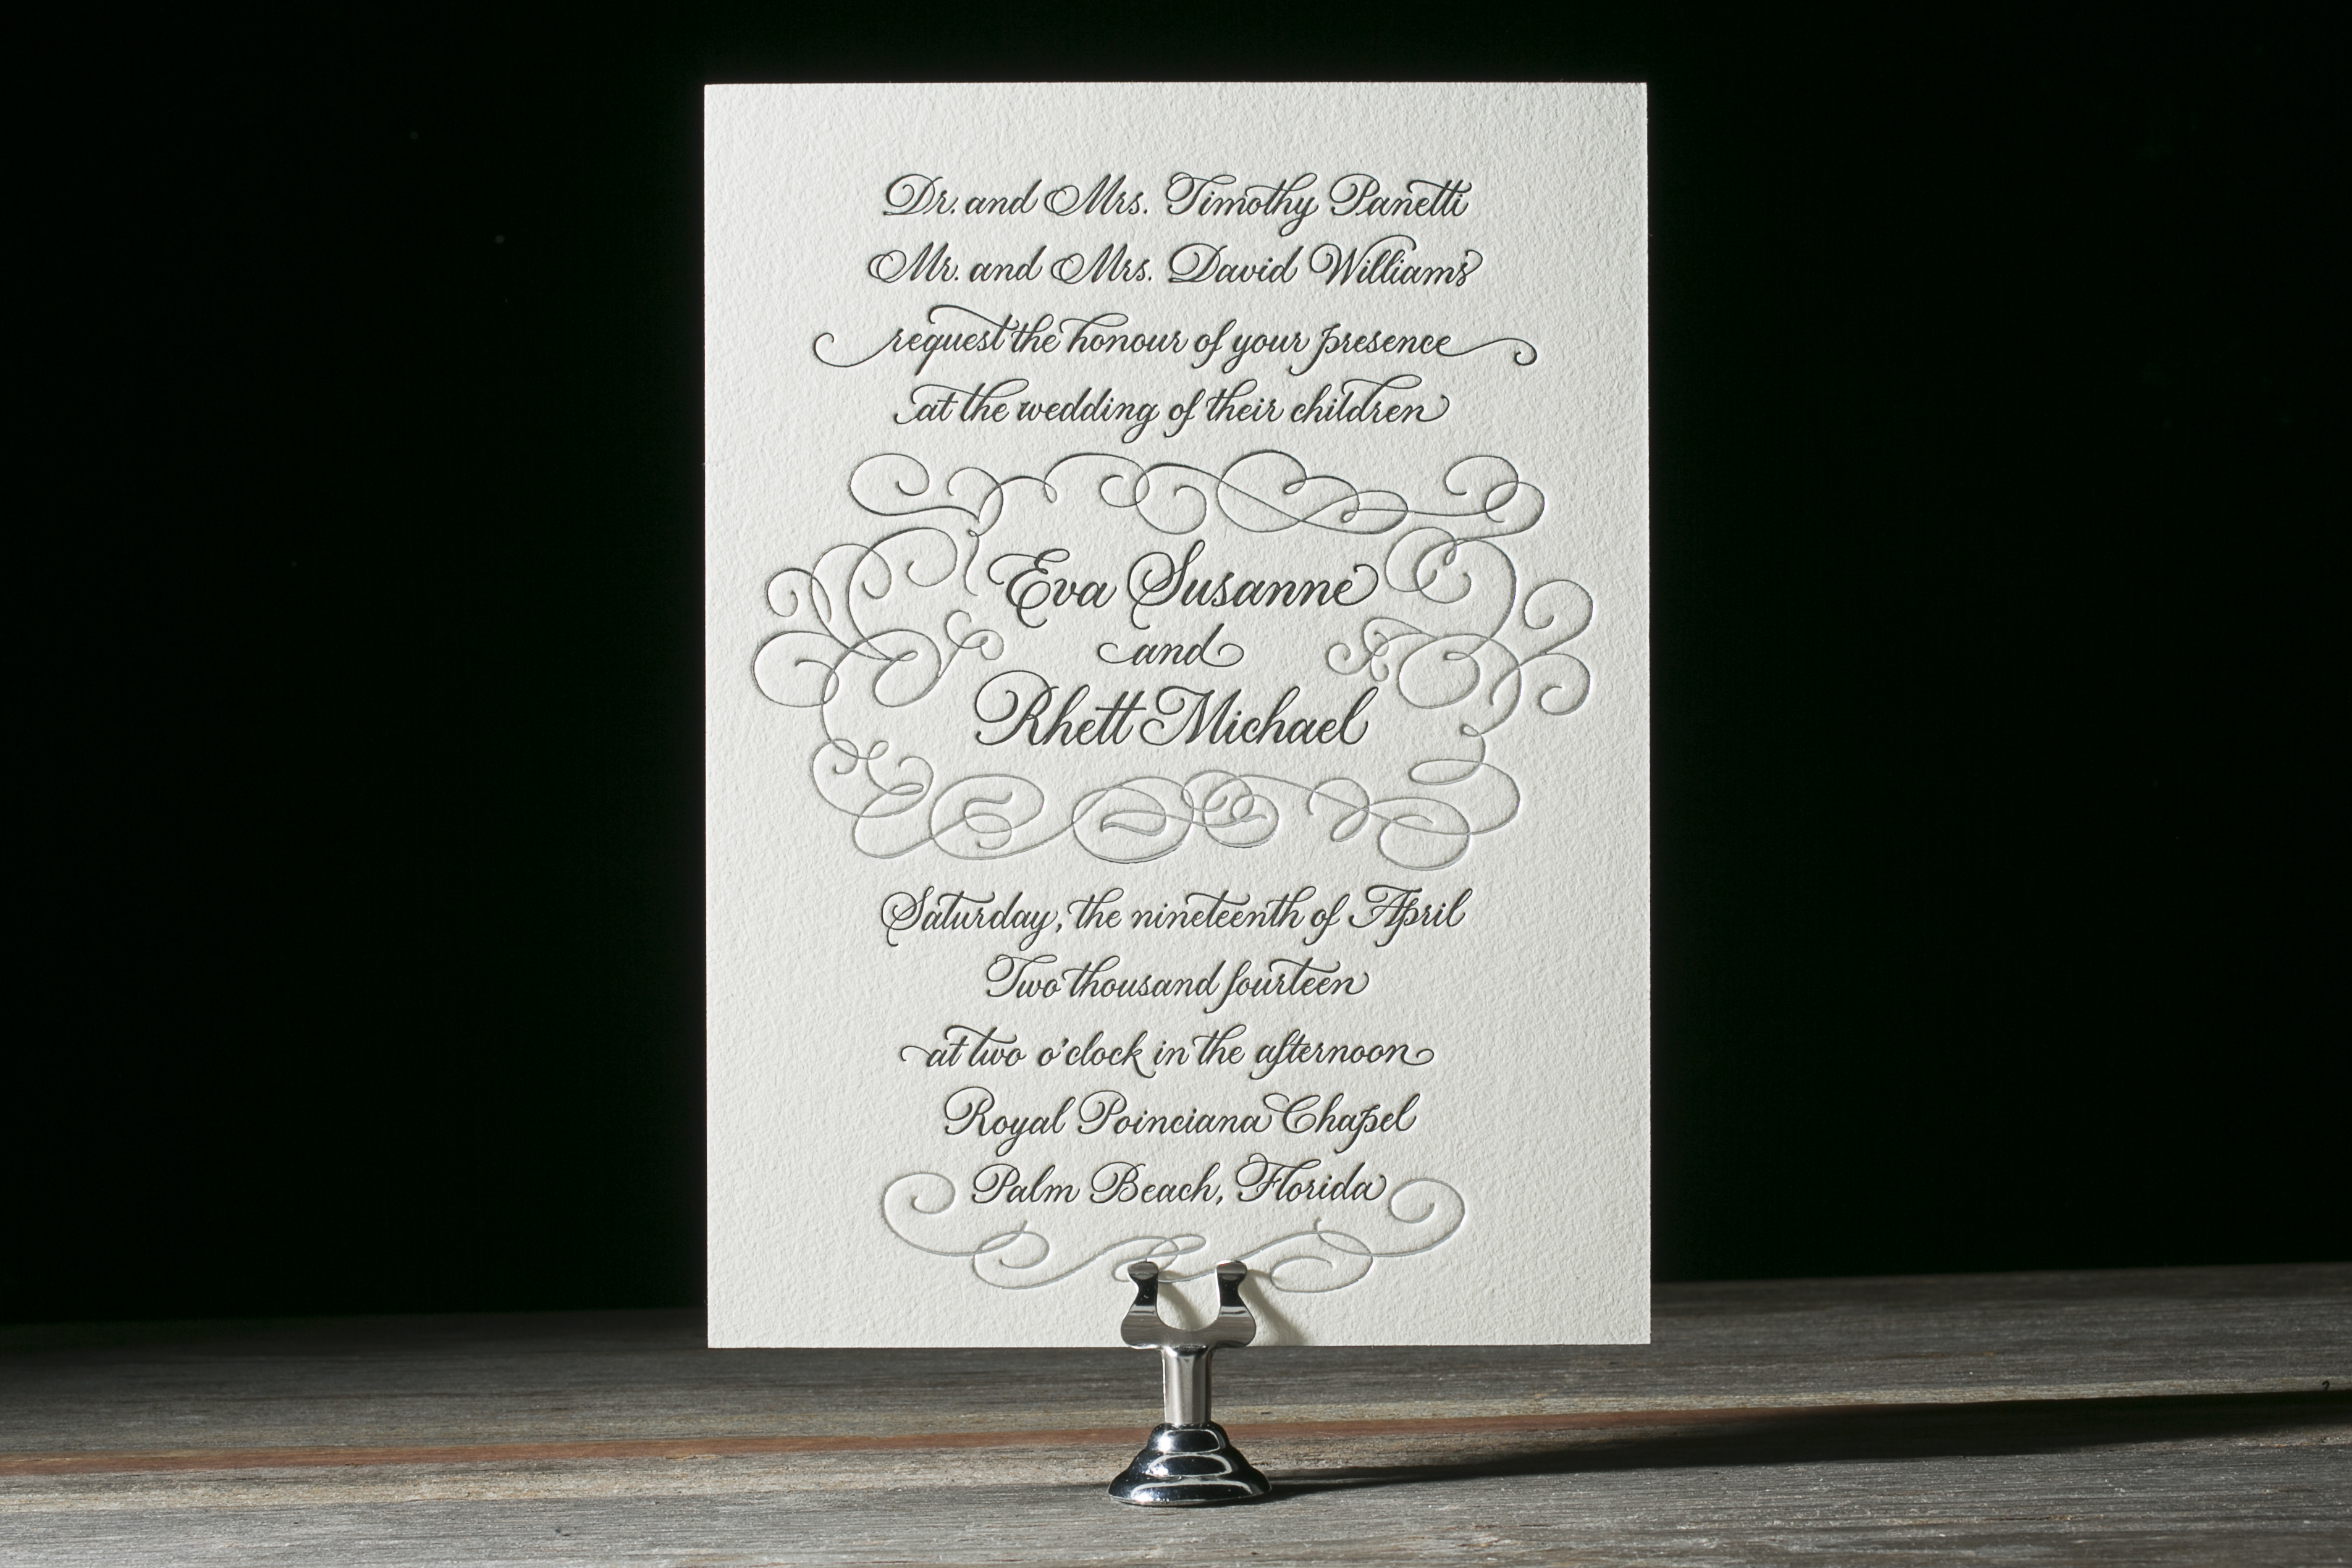 Dr. and Mrs. Timothy Panetti
Mr. and Mrs. David Williams
request the honour of your presence
at the wedding of their children
Eva Susanne
and
Rhett Michael
Saturday, the nineteenth of April
Two thousand fourteen
at two o'clock in the afternoon
Royal Poinciana Chapel
Palm Beach, Florida